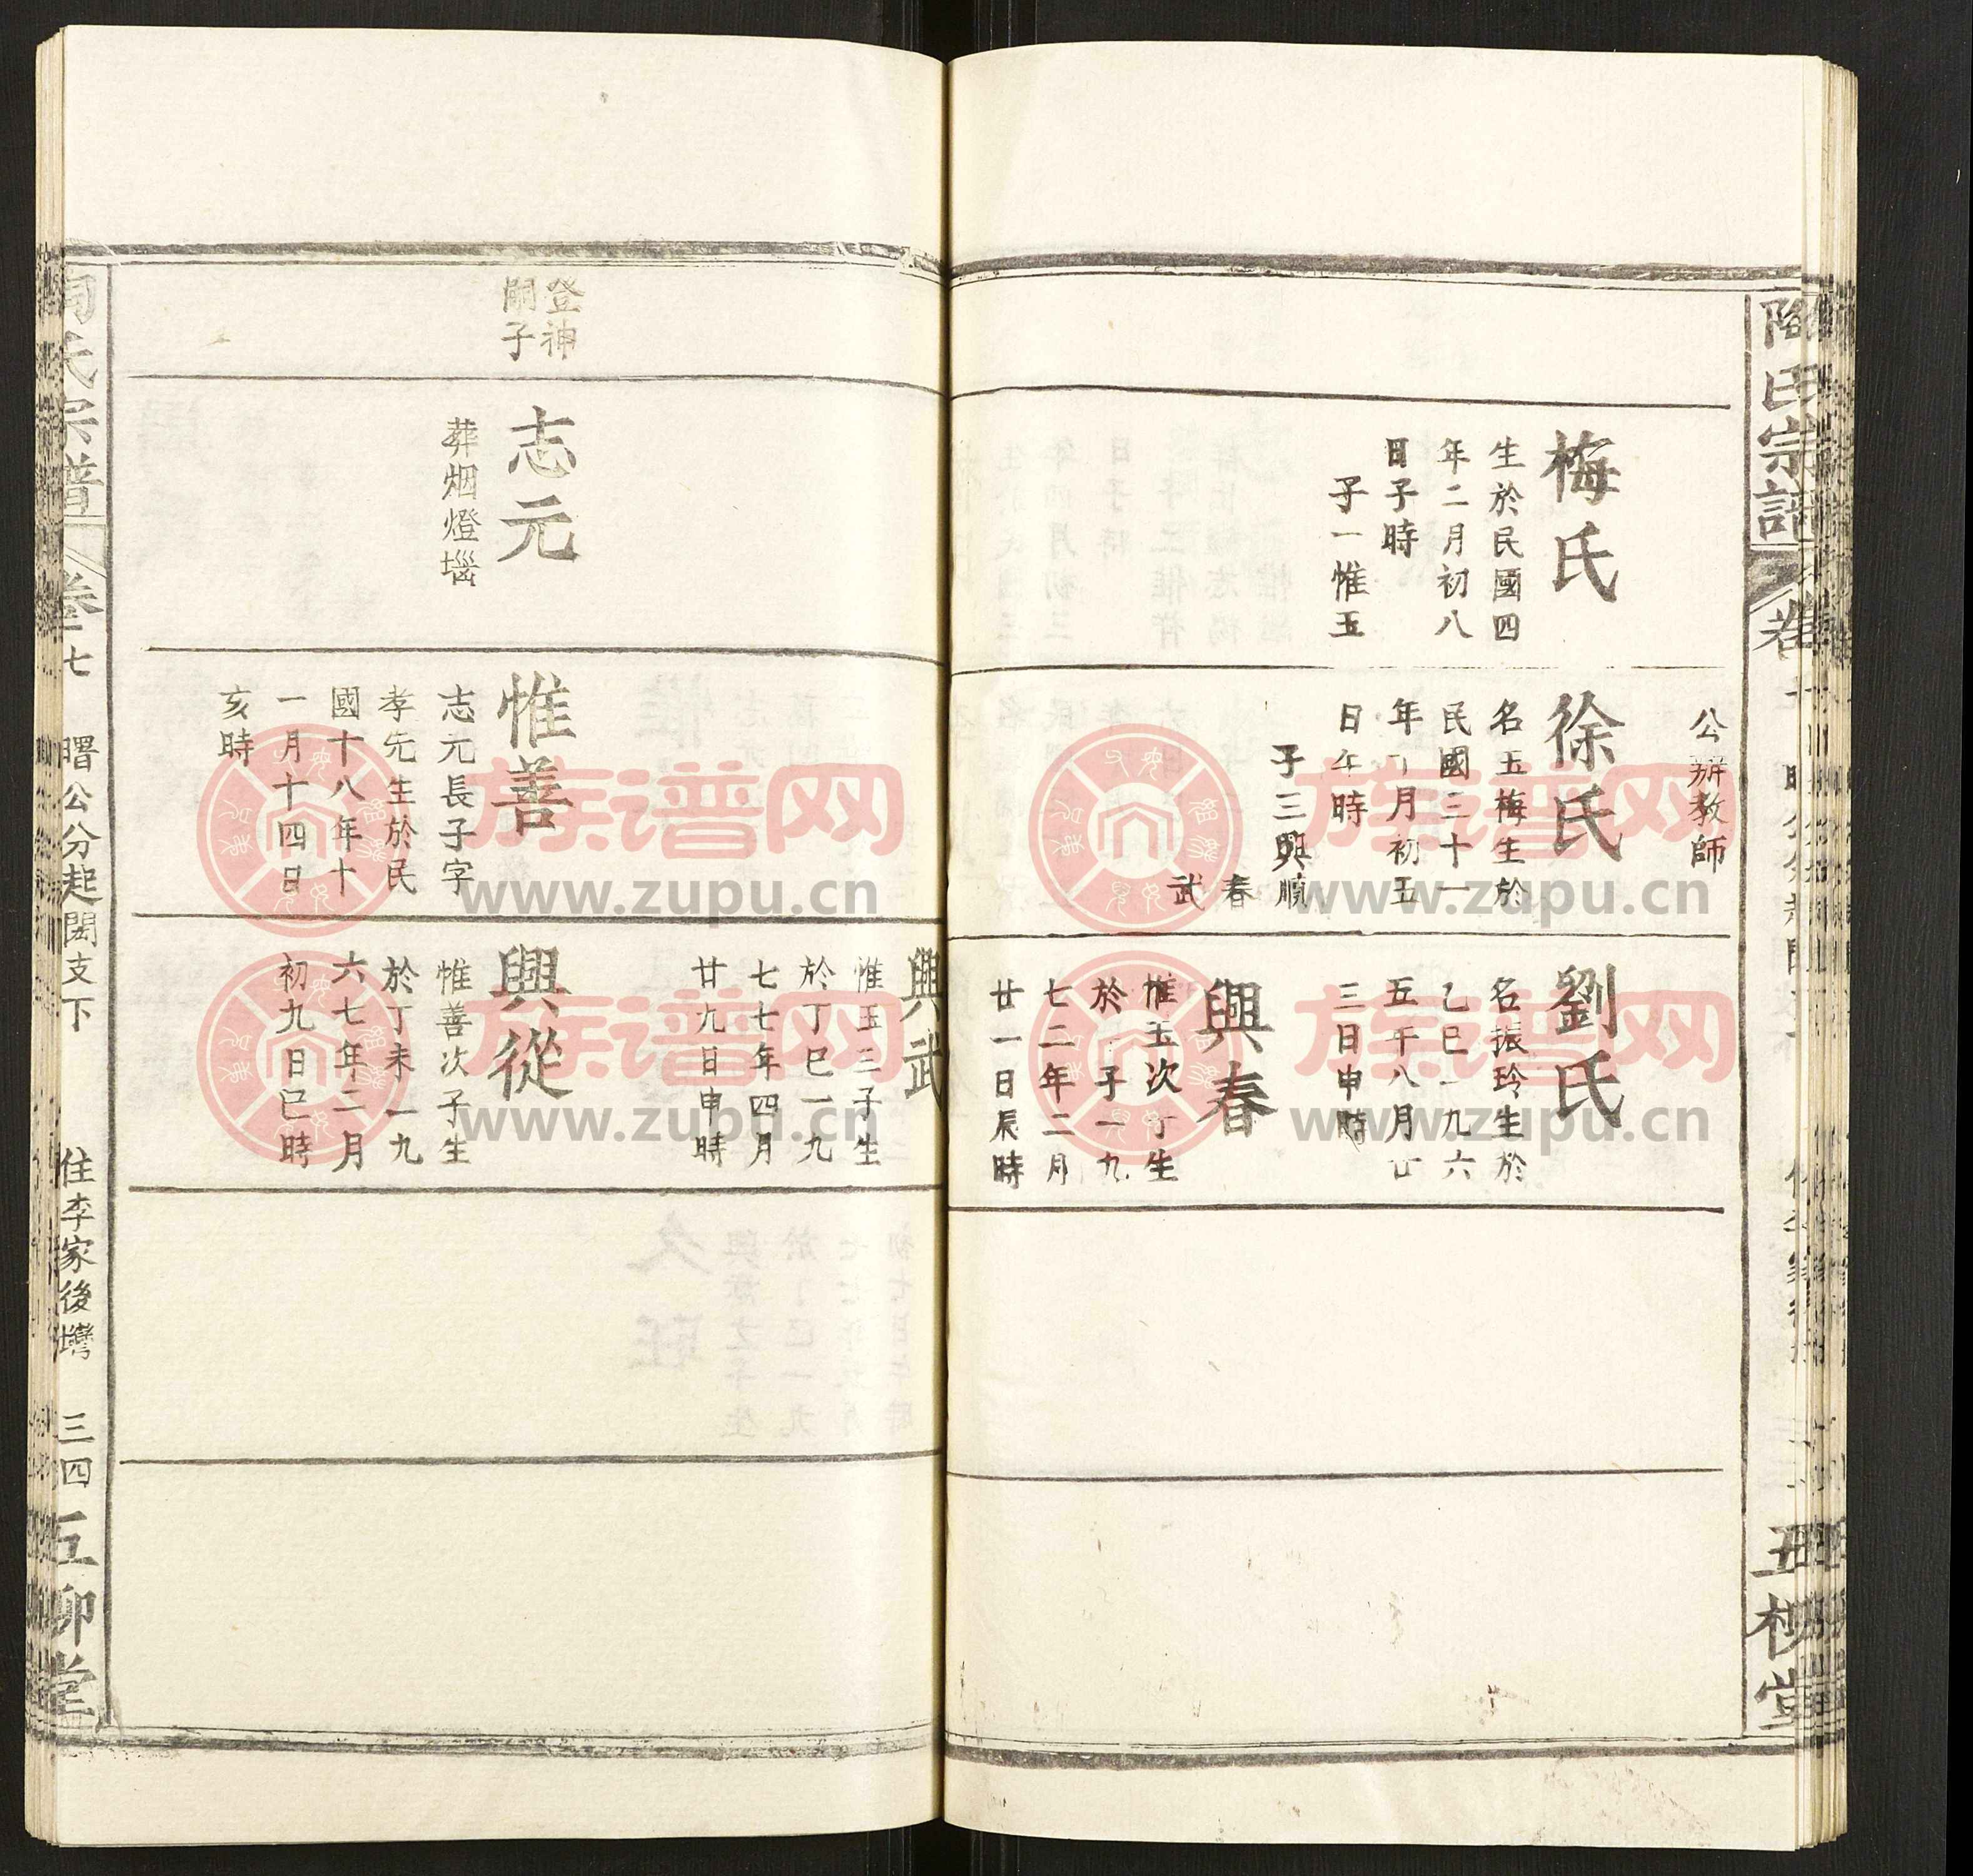 陶氏宗譜
五柳堂
梅氏
生於民國四
年二月初八
日子時
子一惟玉
公辦教師
徐氏
名玉梅生於
民國三十一
月初五
日午時
子三興順
春
武
劉氏
名振玲生於
乙巳一九六
五年八月廿
三日申時
興春
惟玉次子生
於子一九
七二年二月
廿一日辰時
興武
惟玉三子生
於丁巳一九
七七年四月
廿九日申時
登神
嗣子
志元
葬烟燈堖
惟善
志元長子字
孝先生於民
國十八年十
一月十四日
亥時
興從
惟善次子生
於丁未一九
六七年二月
初九日巳時
陶氏宗譜
卷七
曙公分起閎支下
住李家後灣
三四
五柳堂
族谱网
www.zupu.cn
族谱网
www.zupu.cn
族谱网
www.zupu.cn
族谱网
www.zupu.cn